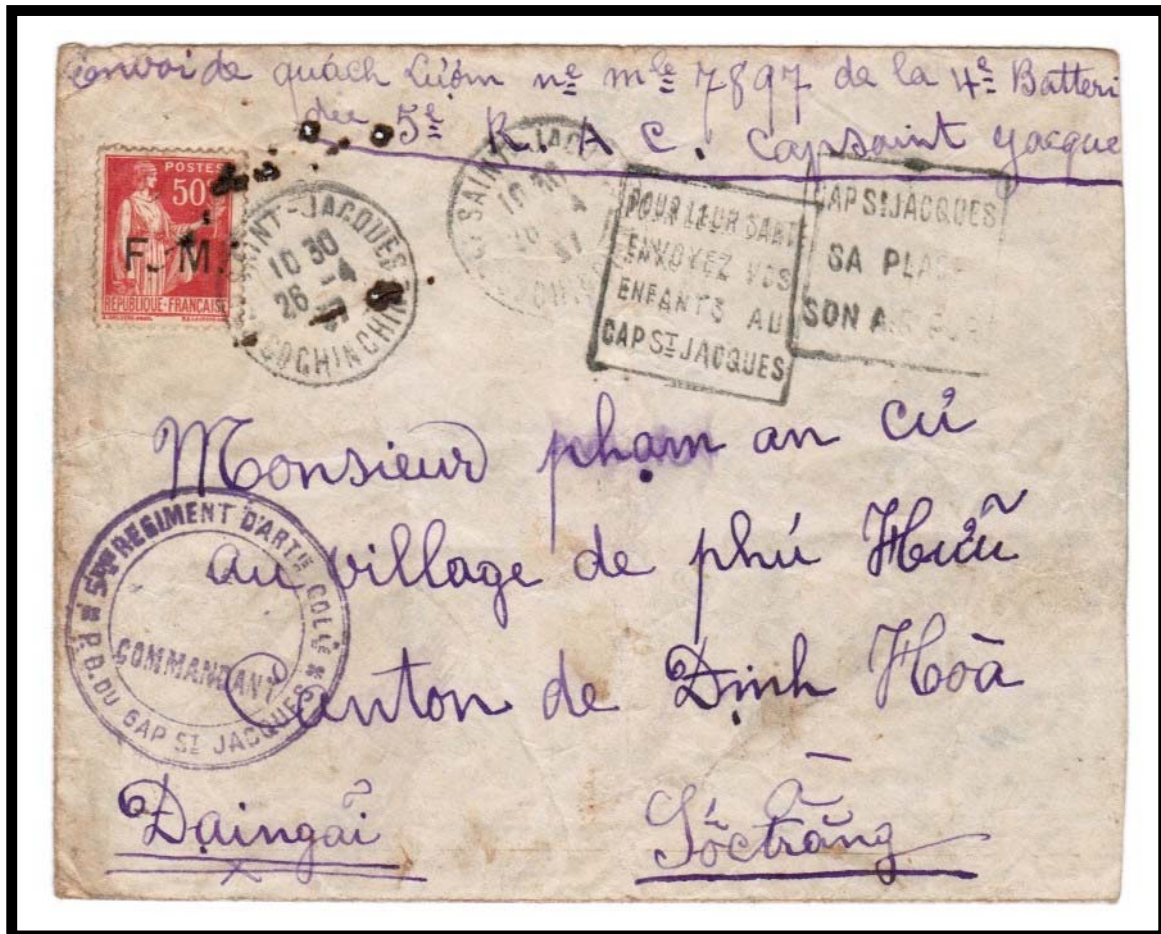 envoi de quách Lượm nº mle 7897 de la 4è Batteri
du 5è R. A C. Capsaint Jacque
POSTES
50c
F. M.
REPUBLIQUE-FRANÇAISE
SAINT-JACQUES
10 30
26 -4
COCHINCHINE
SAINT-JACQ
10 30
26 -4
37
POUR LEUR SANTE
ENVOYEZ VOS
ENFANTS AU
CAP ST JACQUES
CAP ST JACQUES
SA PLAGE
SON AIR PUR
Monsieur phạm an cứ
au village de phú Hữu
Canton de Định Hoà
Đạingãi
Sốctrăng
5me REGIMENT D'ARTIE COLLE
COMMANDANT
P.D. DU CAP ST JACQUES